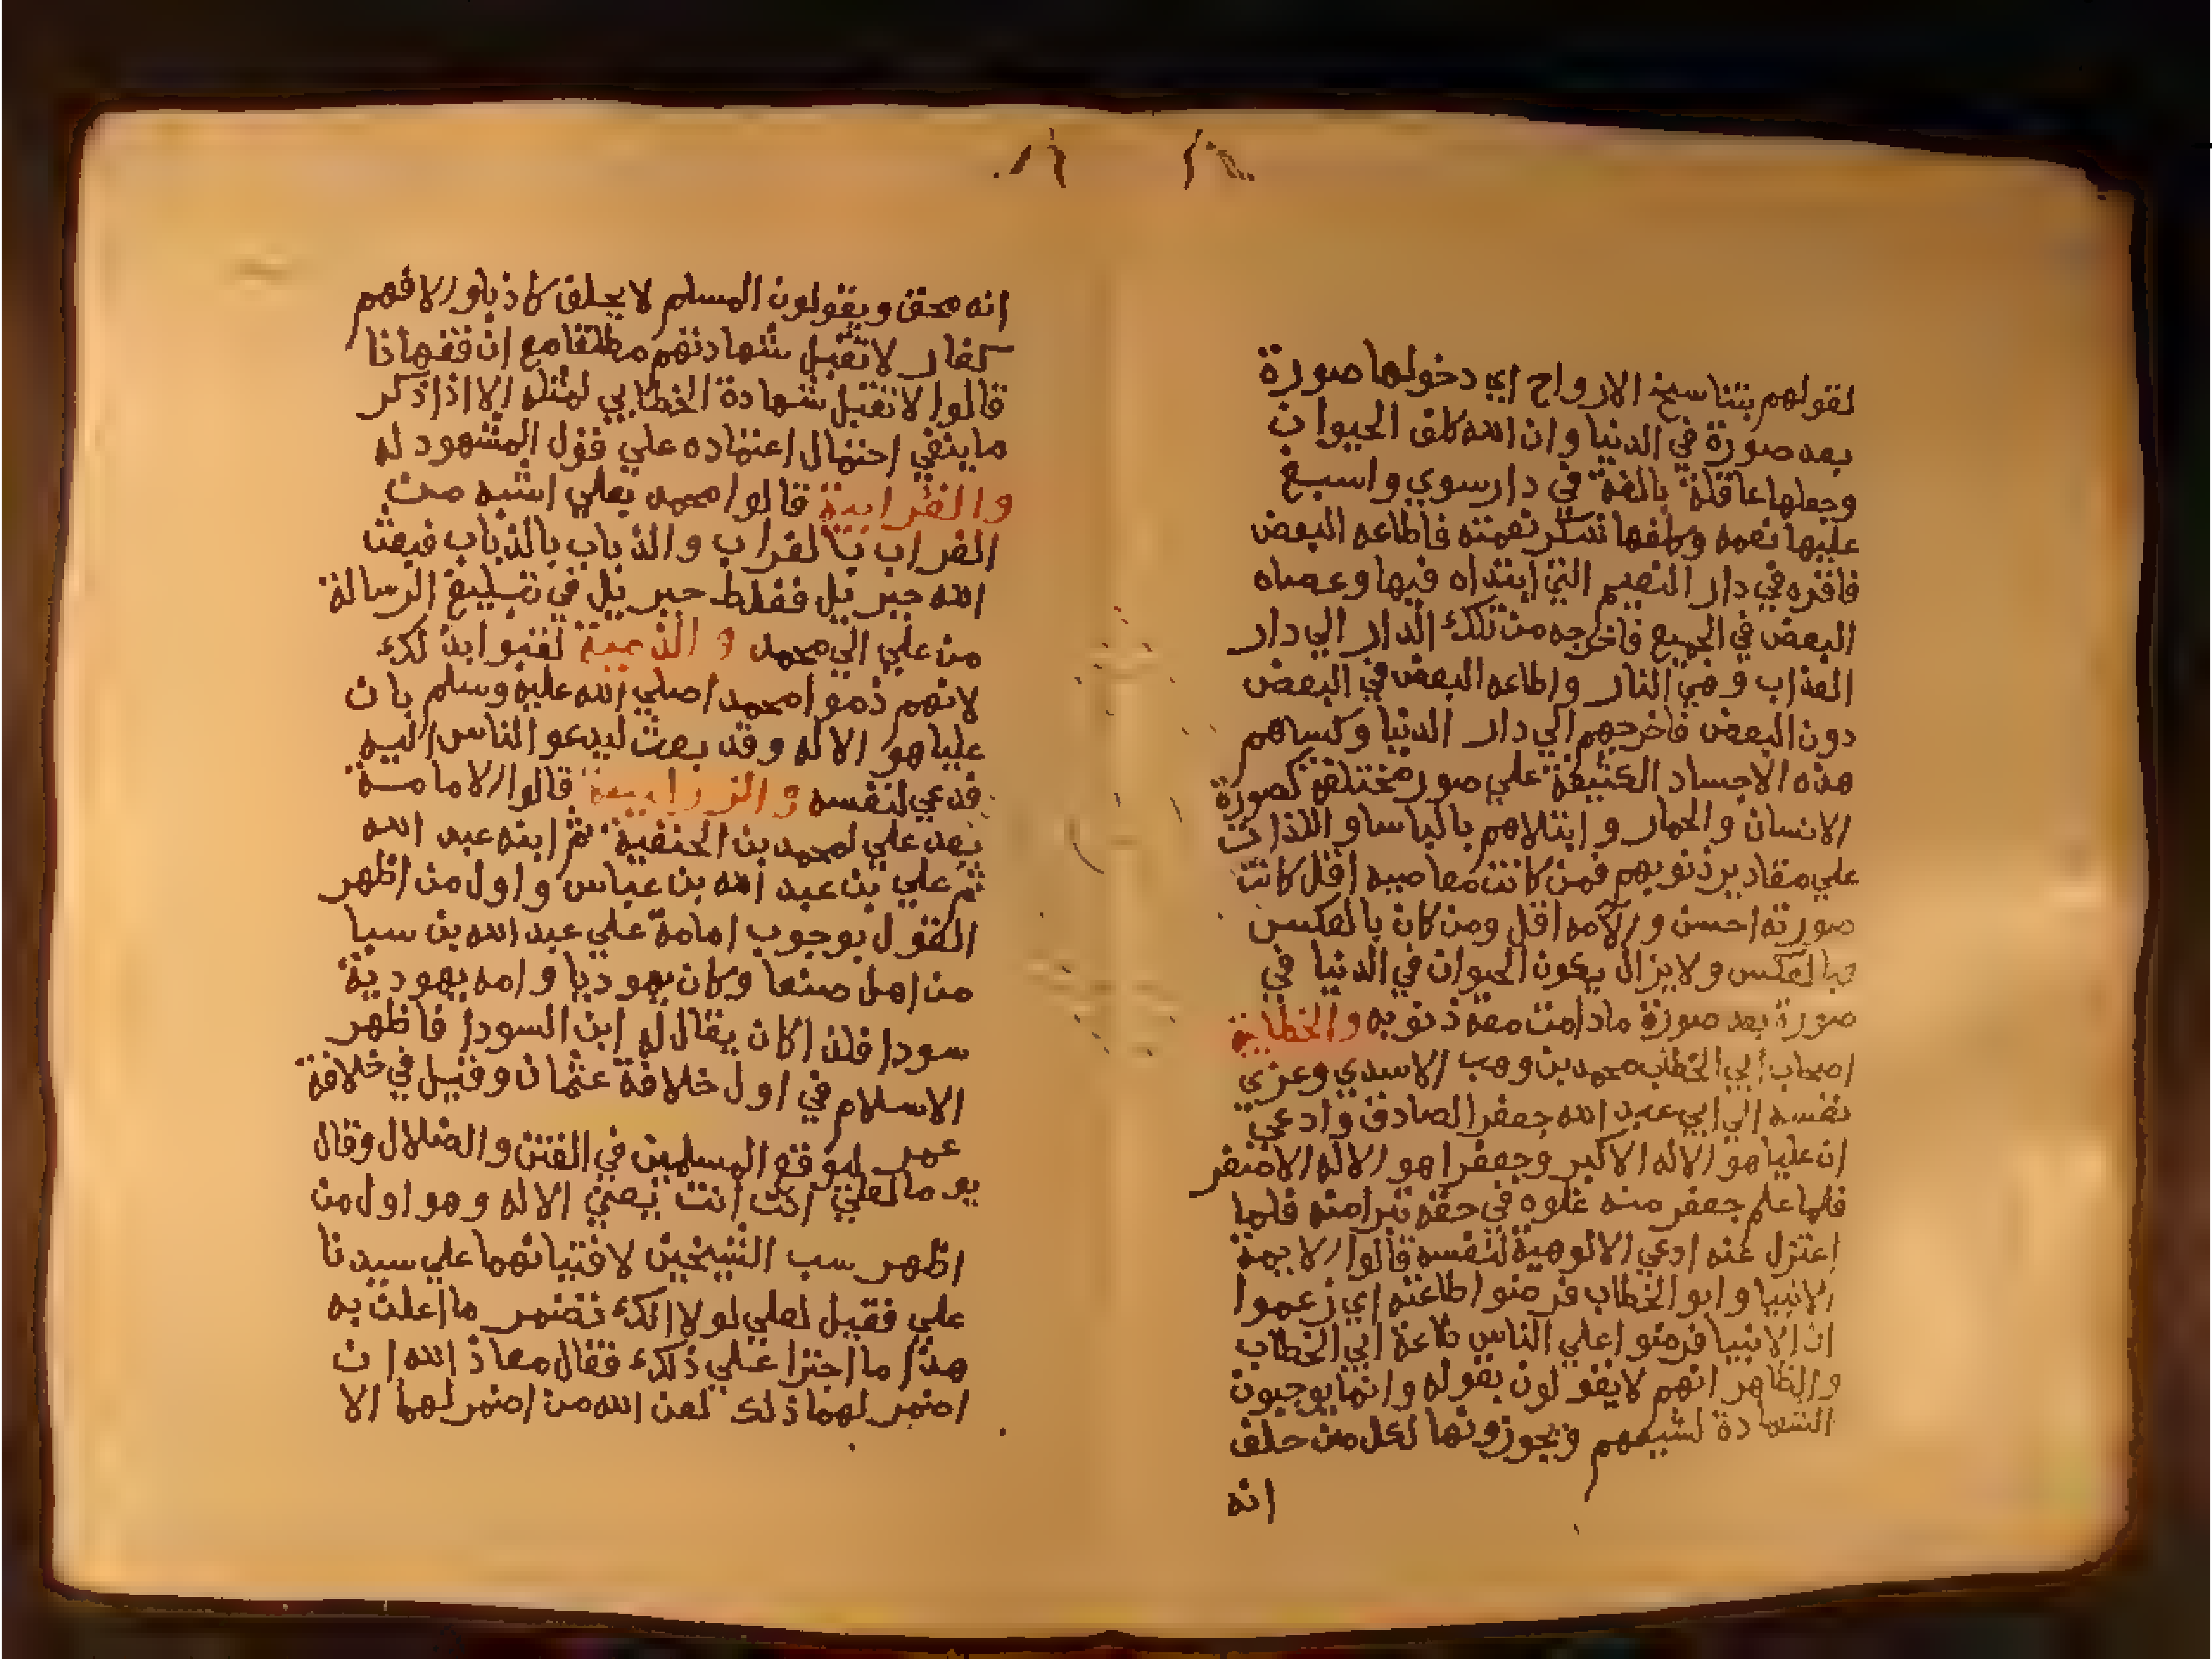 لقولهم بتناسخ الارواح اي دخولها صورة
بعد صورة في الدنيا وان الله كلف الحيوان
وجعلها عاقلة بالغة في دار سوي واسبغ
عليها نعمه وكلفها شكر نعمته فاطاعه البعض
فاقره في دار النعيم التي ابتداه فيها وعصاه
البعض في الجميع فاخرجه من تلك الدار الي دار
العذاب وهي النار واطاعه البعض في البعض
دون البعض فاخرجهم الي دار الدنيا وكساهم
هذه الاجساد الكثيفة علي صور مختلفة كصورة
الانسان والحمار وابتلاهم بالباسا واللذات
علي مقادير ذنوبهم فمن كانت معاصيه اقل كانت
صورته احسن والآمه اقل ومن كان بالعكس
فبالعكس ولا يزال يكون الحيوان في الدنيا في
صورة بعد صورة مادامت معه ذنوبه والخطابية
اصحاب ابي الخطاب محمد بن وهب الاسدي وعزي
نفسه الي ابي عبد الله جعفر الصادق وادعي
ان عليا هو الاله الاكبر وجعفرا هو الاله الاصغر
فلما علم جعفر منه غلوه في حقه تبرا منه فلما
اعتزل عنه ادعي الالوهية لنفسه قالوا الايمة
الانبيا وابو الخطاب فرضوا طاعته اي زعموا
ان الانبيا فرضوا علي الناس طاعة ابي الخطاب
والظاهر انهم لايقولون بقوله وانما يوجبون
الشهادة لشيعهم ويجوزونها لكل من حلف
انه
انه محق ويقولون المسلم لا يحلف كاذبا والا فهم
كفار لا تقبل شهادتهم مطلقا مع ان فقهانا
قالوا لا تقبل شهادة الخطابي لمثله الا اذا ذكر
ما ينفي احتمال اعتماده علي قول المشهود له
والغرابية قالوا محمد بعلي اشبه من
الغراب بالغراب والذباب بالذباب فبعث
الله جبريل فغلط جبريل في تبليغ الرسالة
من علي الي محمد والذمية لقبوا بذلك
لانهم ذموا محمدا صلي الله عليه وسلم بان
عليا هو الاله وقد بعث ليدعو الناس اليه
فدعي لنفسه والزرابية قالوا الامامة
بعد علي لمحمد بن الحنفية ثم ابنه عبد الله
ثم علي بن عبد الله بن عباس واول من اظهر
القول بوجوب امامة علي عبد الله بن سبا
من اهل صنعا وكان يهوديا وامه يهودية
سودا فلذا كان يقال له ابن السودا فاظهر
الاسلام في اول خلافة عثمان وقيل في خلافة
عمر ليوقع المسلمين في الفتن والضلال وقال
يوما لعلي انت انت يعني الاله وهو اول من
اظهر سب الشيخين لافتياتهما علي سيدنا
علي فقيل لعلي لولا انك تضمر ما اعلن به
هذا ما اجترا علي ذلك فقال معاذ الله ان
اضمر لهما ذلك لعن الله من اضمر لهما الا